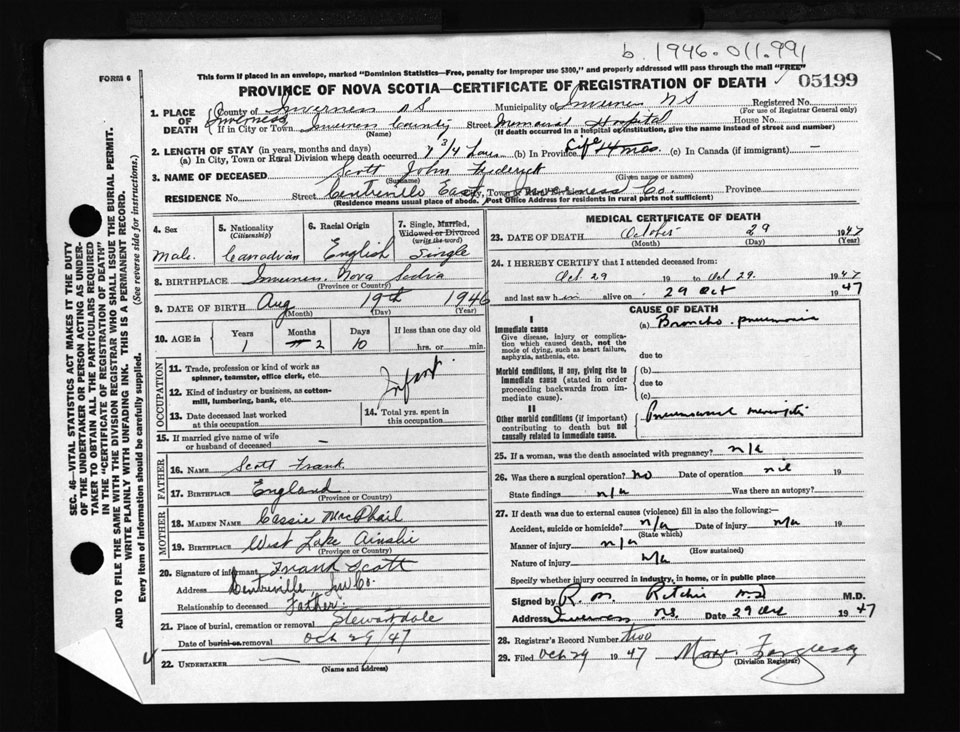 b. 1946.011.991
FORM 6
This form if placed in an envelope, marked "Dominion Statistics—Free, penalty for improper use $300," and properly addressed will pass through the mail "FREE"
PROVINCE OF NOVA SCOTIA—CERTIFICATE OF REGISTRATION OF DEATH
05199
1. PLACE OF DEATH
County of Inverness NS Municipality of Inverness NS Registered No.
(For use of Registrar General only)
Inverness
If in City or Town Inverness County Street Memorial Hospital House No.
(Name) (If death occurred in a hospital or institution, give the name instead of street and number)
2. LENGTH OF STAY (in years, months and days)
(a) In City, Town or Rural Division where death occurred 1 3/4 hours (b) In Province Life 14 mos. (c) In Canada (if immigrant) —
3. NAME OF DECEASED Scott John Frederick
(Surname) (Given name or names)
RESIDENCE No. Street Centreville East City, Town or Inverness Co. Province
(Residence means usual place of abode. Post Office Address for residents in rural parts not sufficient)
4. Sex Male
5. Nationality (Citizenship) Canadian
6. Racial Origin English
7. Single, Married, Widowed or Divorced (write the word) Single
8. BIRTHPLACE Inverness, Nova Scotia
(Province or Country)
9. DATE OF BIRTH Aug 19th 1946
(Month) (Day) (Year)
10. AGE in Years Months Days If less than one day old
1 2 10 hrs. or min.
OCCUPATION
11. Trade, profession or kind of work as spinner, teamster, office clerk, etc.
Infant
12. Kind of industry or business, as cotton-mill, lumbering, bank, etc.
13. Date deceased last worked at this occupation
14. Total yrs. spent in this occupation
15. If married give name of wife or husband of deceased —
FATHER
16. NAME Scott Frank
17. BIRTHPLACE England
(Province or Country)
MOTHER
18. MAIDEN NAME Cassie MacPhail
19. BIRTHPLACE West Lake Ainslie
(Province or Country)
20. Signature of informant Frank Scott
Address Centreville, Inv Co.
Relationship to deceased Father
21. Place of burial, cremation or removal Stewartdale
Date of burial or removal Oct 29/47
22. UNDERTAKER —
(Name and address)
MEDICAL CERTIFICATE OF DEATH
23. DATE OF DEATH October 29 1947
(Month) (Day) (Year)
24. I HEREBY CERTIFY that I attended deceased from:
Oct. 29 19 to Oct 29. 1947
and last saw him alive on 29 Oct 1947
CAUSE OF DEATH
I
Immediate cause (a) Broncho-pneumonia
Give disease, injury or complication which caused death, not the mode of dying, such as heart failure, asphyxia, asthenia, etc.
due to
Morbid conditions, if any, giving rise to immediate cause (stated in order proceeding backwards from immediate cause).
(b)
due to
(c)
II
Other morbid conditions (if important) contributing to death but not causally related to immediate cause.
Pneumococcal meningitis
25. If a woman, was the death associated with pregnancy? n/a
26. Was there a surgical operation? No Date of operation nil 19
State findings n/a Was there an autopsy?
27. If death was due to external causes (violence) fill in also the following:—
Accident, suicide or homicide? n/a Date of injury n/a 19
(State which)
Manner of injury n/a
(How sustained)
Nature of injury n/a
Specify whether injury occurred in industry, in home, or in public place
Signed by R. M. Ritchie MD M.D.
Address Inverness NS. Date 29 Oct 1947
28. Registrar's Record Number two
29. Filed Oct 29 1947
(Division Registrar)
SEC. 46—VITAL STATISTICS ACT MAKES IT THE DUTY
OF THE UNDERTAKER OR PERSON ACTING AS UNDER-
TAKER TO OBTAIN ALL THE PARTICULARS REQUIRED
IN THE "CERTIFICATE OF REGISTRATION OF DEATH"
AND TO FILE THE SAME WITH THE DIVISION REGISTRAR WHO SHALL ISSUE THE BURIAL PERMIT.
WRITE PLAINLY WITH UNFADING INK. THIS IS A PERMANENT RECORD.
Every item of information should be carefully supplied. (See reverse side for instructions.)